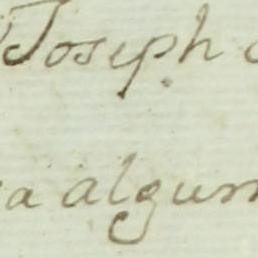 Joseph
a algum